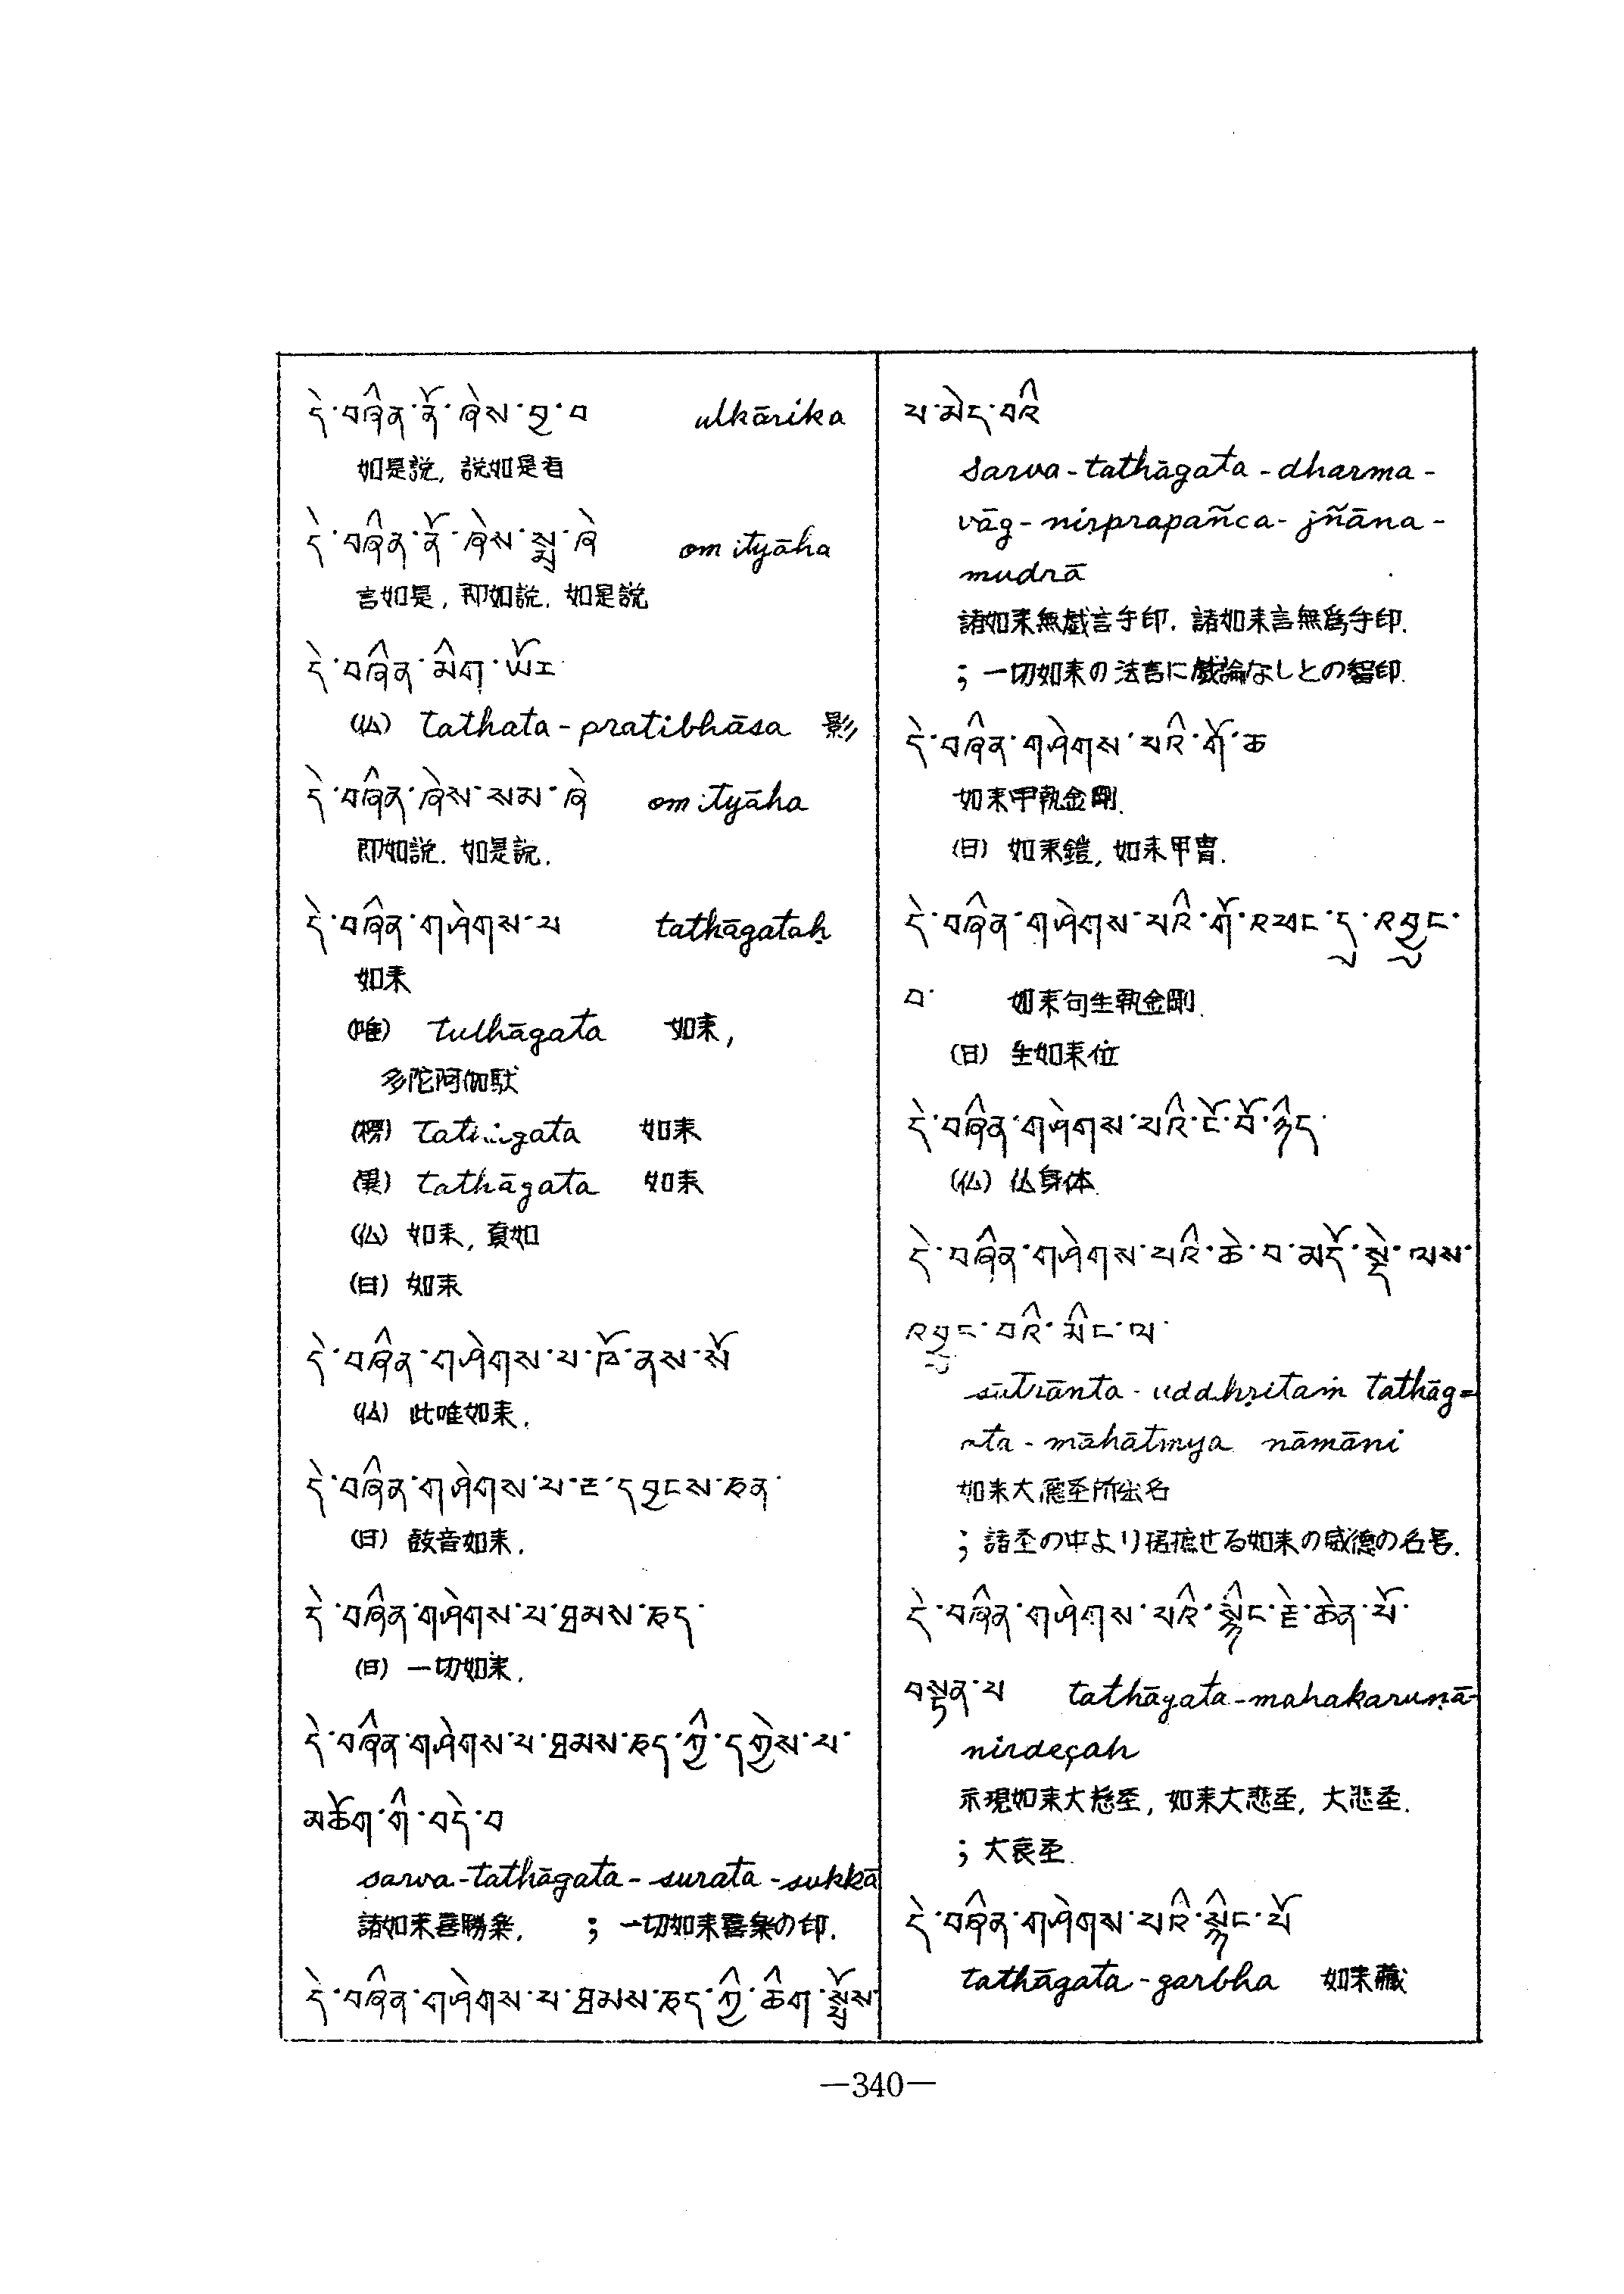 དེ་བཞིན་ནོ་ཞེས་བྱ་བ ulkārika
如是説, 説如是者
དེ་བཞིན་ནོ་ཞེས་སྨྲ་ཞེ om ityāha
言如是, 即如説. 如是説
དེ་བཞིན་མིག་ཡོར
(仏) tathata-pratibhāsa 影
དེ་བཞིན་ཞེས་སམ་ཞེ om ityāha
即如説. 如是説.
དེ་བཞིན་གཤེགས་པ tathāgataḥ
如来
(唯) tulhāgata 如来,
多陀阿伽馱
(楞) gata 如来
(果) tathāgata 如来
(仏) 如来, 真如
(日) 如来
དེ་བཞིན་གཤེགས་པ་ཁོ་ནས་སོ
(仏) 此唯如来.
དེ་བཞིན་གཤེགས་པ་རྔ་དབྱངས་ཅན་
(日) 鼓音如来.
དེ་བཞིན་གཤེགས་པ་ཐམས་ཅད་
(日) 一切如来.
དེ་བཞིན་གཤེགས་པ་ཐམས་ཅད་ཀྱི་དགྱེས་པ་
མཆོག་གི་བདེ་བ
sarva-tathāgata-surata-sukkā
諸如来喜勝楽. ; 一切如来喜楽の印.
དེ་བཞིན་གཤེགས་པ་ཐམས་ཅད་ཀྱི་ཆིག་སྤྲོས
པ་མེད་པའི
sarva-tathāgata-dharma-
vāg-niṣprapañca-jñāna-
mudrā
諸如来無戯言手印. 諸如来言無為手印.
; 一切如来の法言に戯論なしとの智印.
དེ་བཞིན་གཤེགས་པའི་གོ་ཆ
如来甲執金剛.
(日) 如来鎧, 如来甲冑.
དེ་བཞིན་གཤེགས་པའི་གོ་འཕང་དུ་འབྱུང་
བ་ 如来句生執金剛.
(日) 生如来位
དེ་བཞིན་གཤེགས་པའི་ངོ་བོ་ཉིད་
(仏) 仏身体.
དེ་བཞིན་གཤེགས་པའི་ཆེ་བ་མདོ་སྡེ་ལས་
འབྱུང་བའི་མིང་ལ་
sūtrānta-uddhṛitaṁ tathāg=
ata-māhātmya nāmāni
如来大 所出名
; 諸 の中より せる如来の威徳の名号.
དེ་བཞིན་གཤེགས་པའི་སྙིང་རྗེ་ཆེན་པོ་
བསྟན་པ tathāgata-mahakaruṇā-
nirdeçaḥ
示現如来大慈圣, 如来大悲圣, 大悲圣.
; 大哀圣.
དེ་བཞིན་གཤེགས་པའི་སྙིང་པོ
tathāgata-garbha 如来藏
—340—